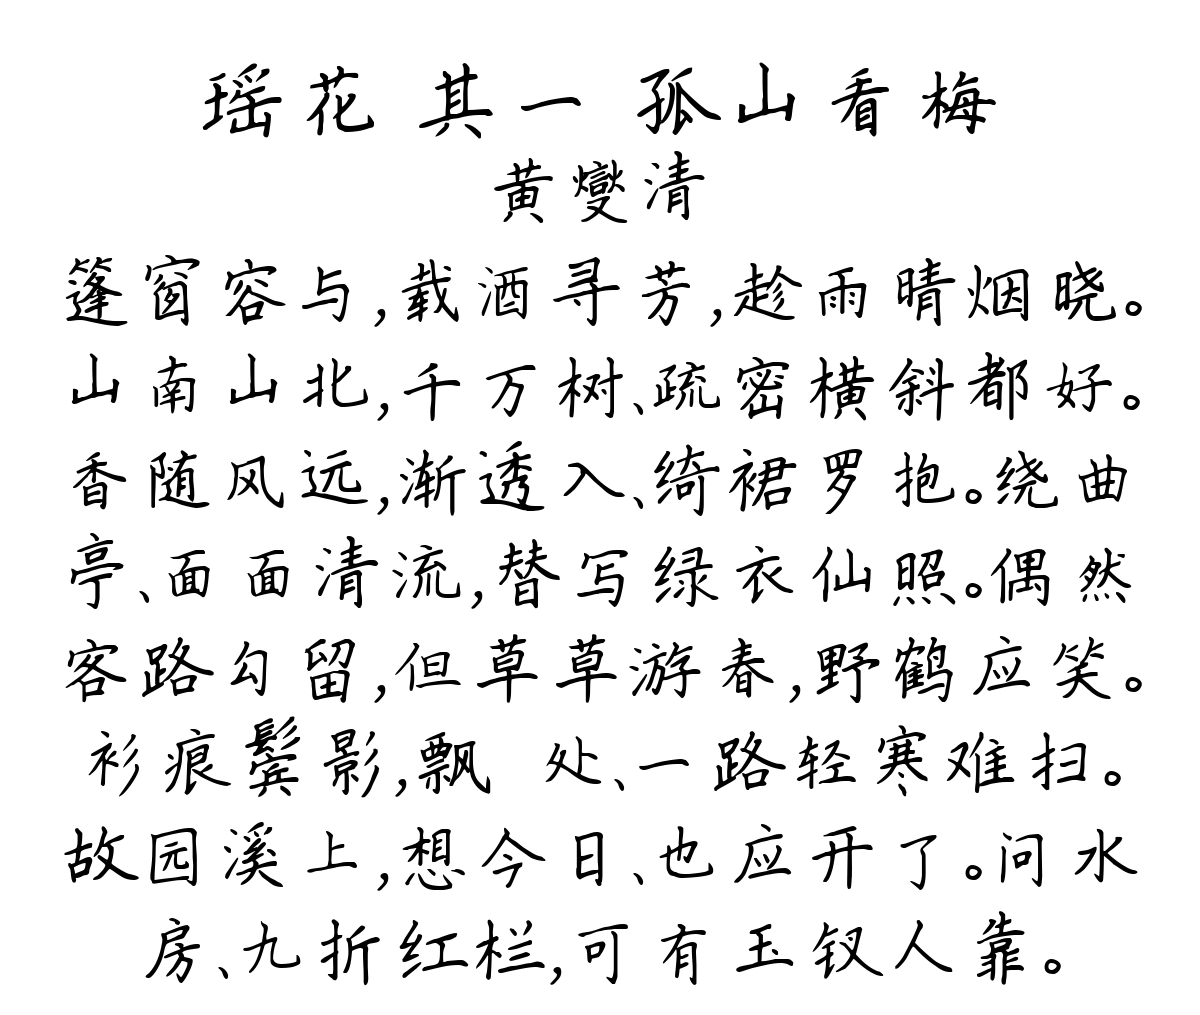 瑶花 其一 孤山看梅
黄燮清
篷窗容与,载酒寻芳,趁雨晴烟晓。
山南山北,千万树、疏密横斜都好。
香随风远,渐透入、绮裙罗抱。绕曲
亭、面面清流,替写绿衣仙照。偶然
客路勾留,但草草游春,野鹤应笑。
衫痕鬓影,飘 处、一路轻寒难扫。
故园溪上,想今日、也应开了。问水
房、九折红栏,可有玉钗人靠。